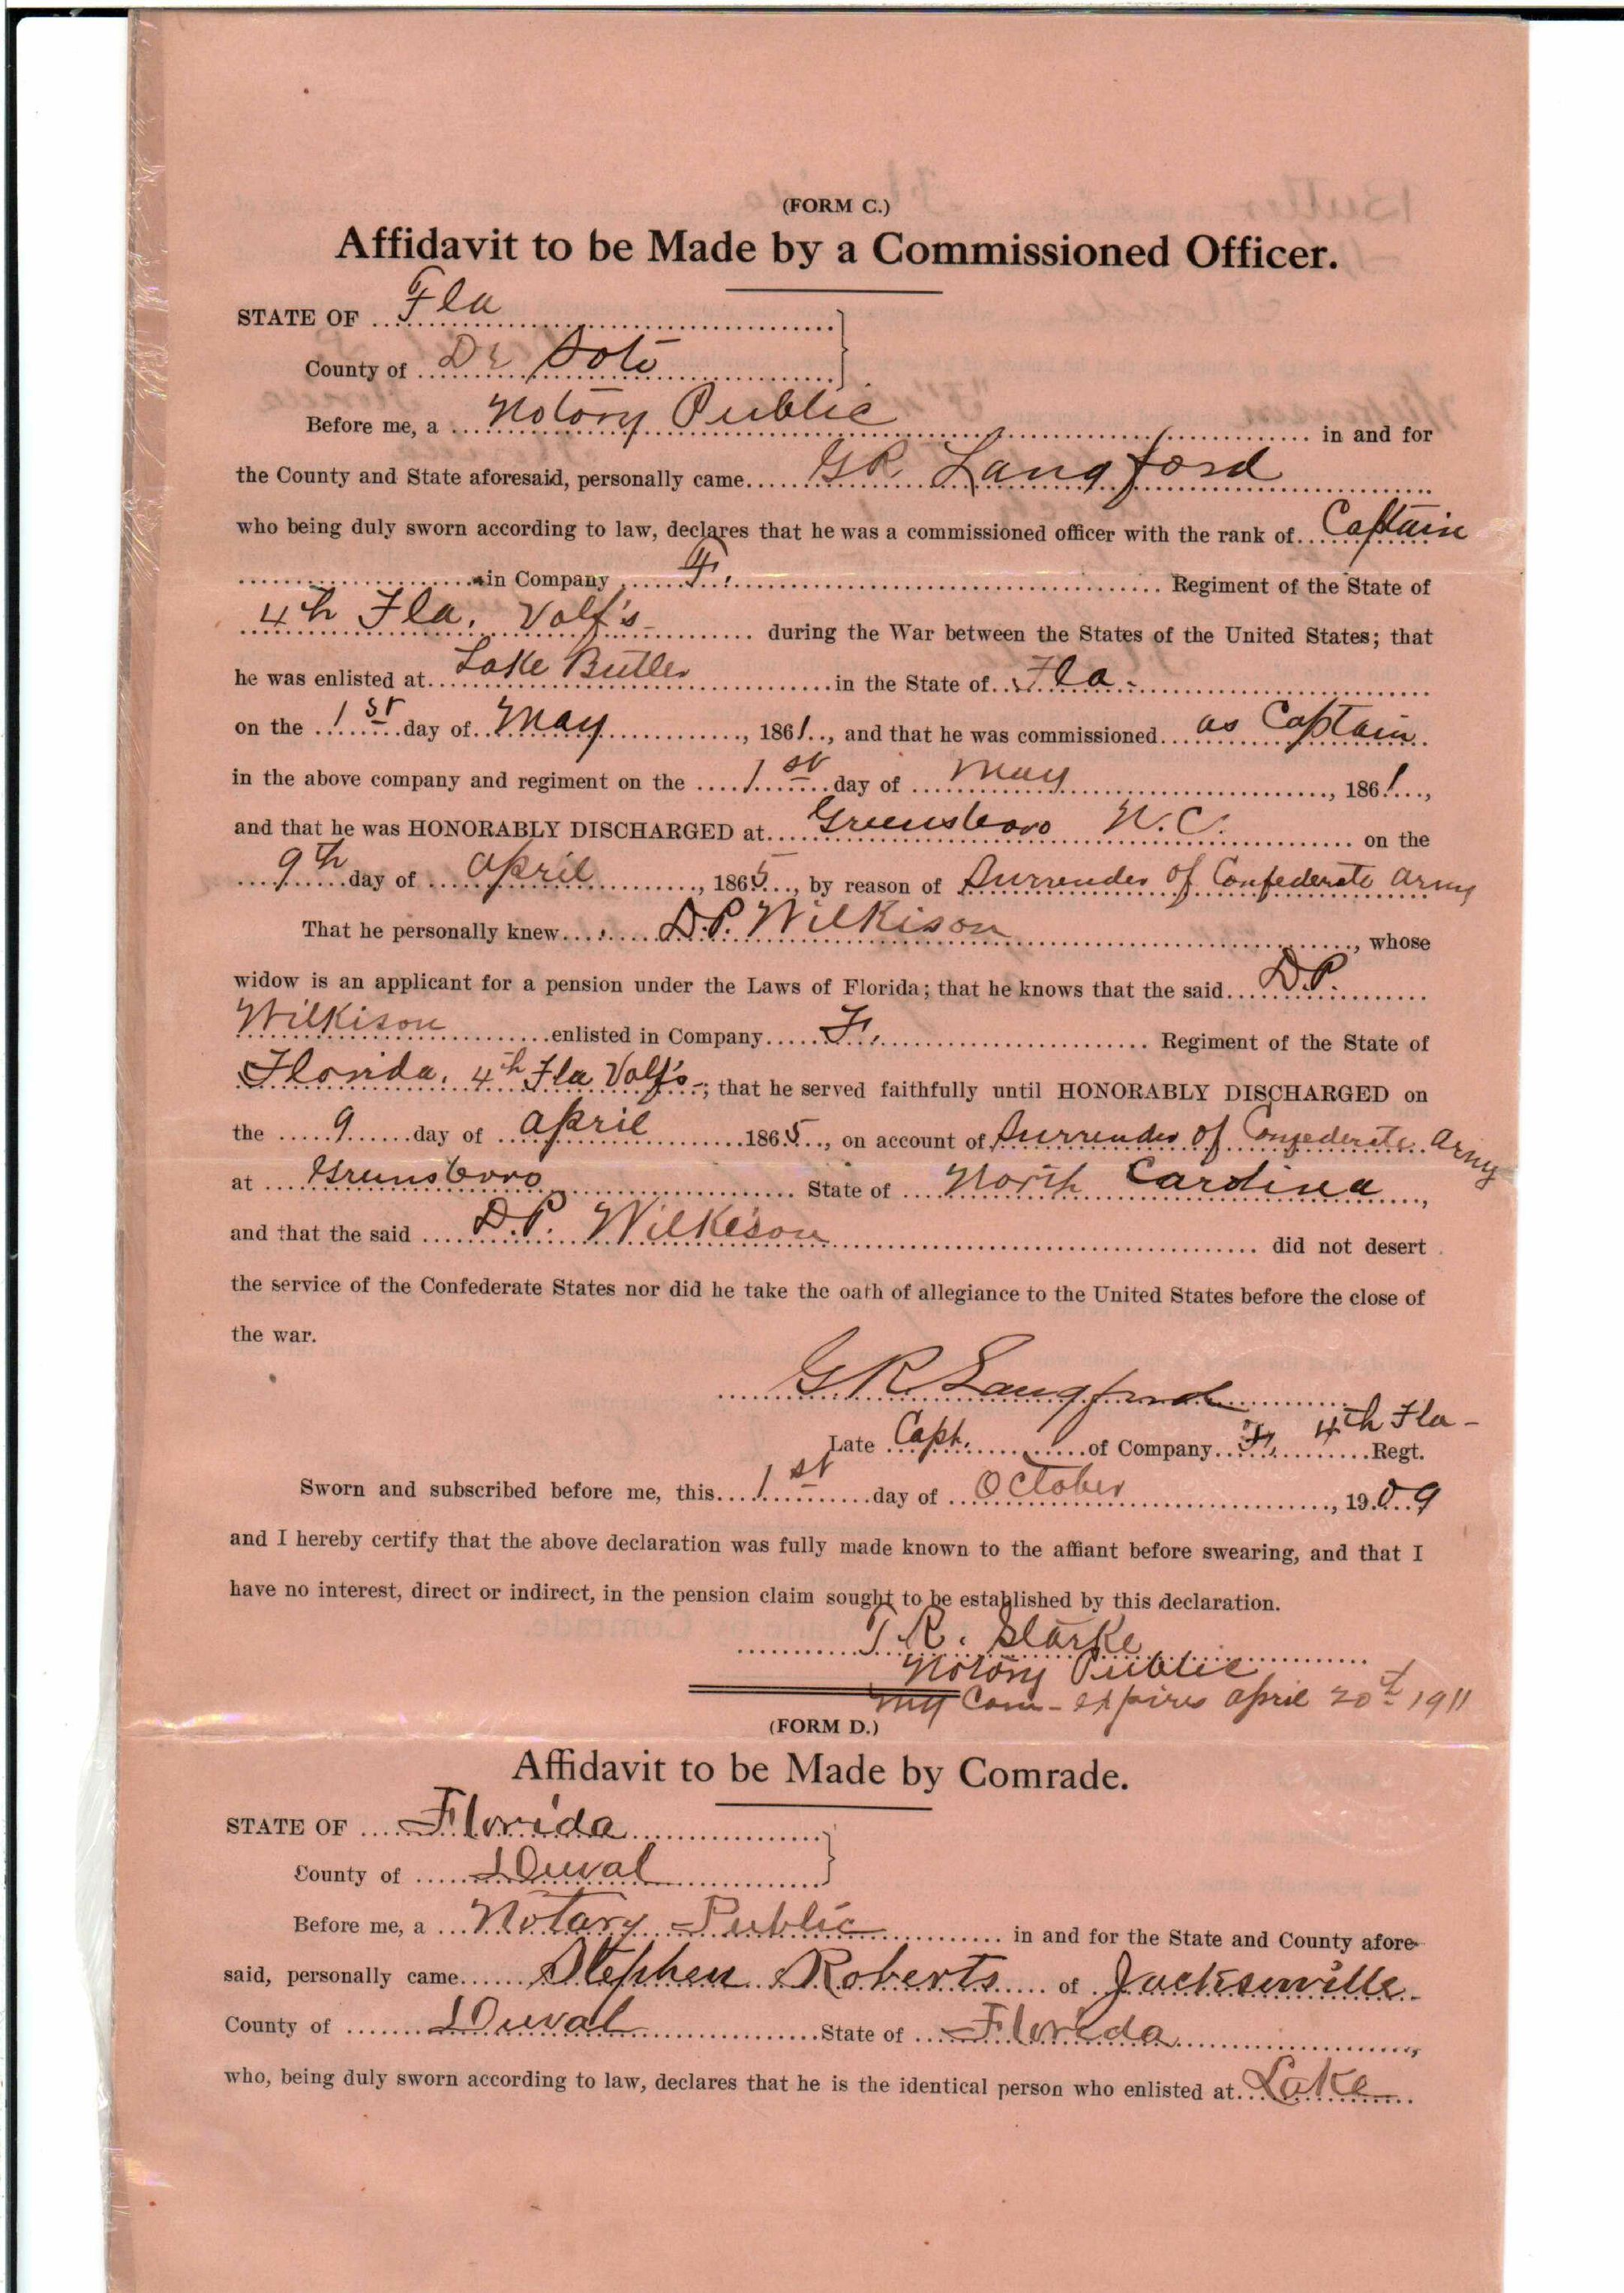 (FORM C.)
Affidavit to be Made by a Commissioned Officer.
STATE OF Fla
County of De Soto
Before me, a Notory Public in and for
the County and State aforesaid, personally came G R Langford
who being duly sworn according to law, declares that he was a commissioned officer with the rank of Captain
in Company F. Regiment of the State of
4th Fla. Volf's during the War between the States of the United States; that
he was enlisted at Lake Butler in the State of Fla -
on the 1st day of May, 1861, and that he was commissioned as Captain
in the above company and regiment on the 1st day of May, 1861,
and that he was HONORABLY DISCHARGED at Greensboro N.C. on the
9th day of April, 1865, by reason of Surrender of Confederate Army
That he personally knew D.P. Wilkison, whose
widow is an applicant for a pension under the Laws of Florida; that he knows that the said D.P.
Wilkison enlisted in Company F. Regiment of the State of
Florida. 4th Fla Volf's -; that he served faithfully until HONORABLY DISCHARGED on
the 9 day of April 1865, on account of Surrender of Confederate Army
at Greensboro State of North Carolina,
and that the said D.P. Wilkison did not desert
the service of the Confederate States nor did he take the oath of allegiance to the United States before the close of
the war.
G R Langford
Late Capt. of Company F. 4th Fla - Regt.
Sworn and subscribed before me, this 1st day of October, 1909
and I hereby certify that the above declaration was fully made known to the affiant before swearing, and that I
have no interest, direct or indirect, in the pension claim sought to be established by this declaration.
J R. Starke
Notory Public
My Com - expires April 20t 1911
(FORM D.)
Affidavit to be Made by Comrade.
STATE OF Florida
County of Duval
Before me, a Notary Public in and for the State and County afore-
said, personally came Stephen Roberts of Jacksonville
County of Duval State of Florida,
who, being duly sworn according to law, declares that he is the identical person who enlisted at Lake